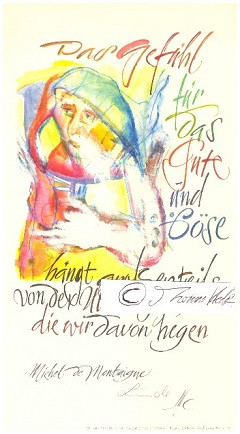 Das Gefühl
für
Das
Gute
und
Böse
hängt
von der
die wir davon hegen
Michel de Montaigne